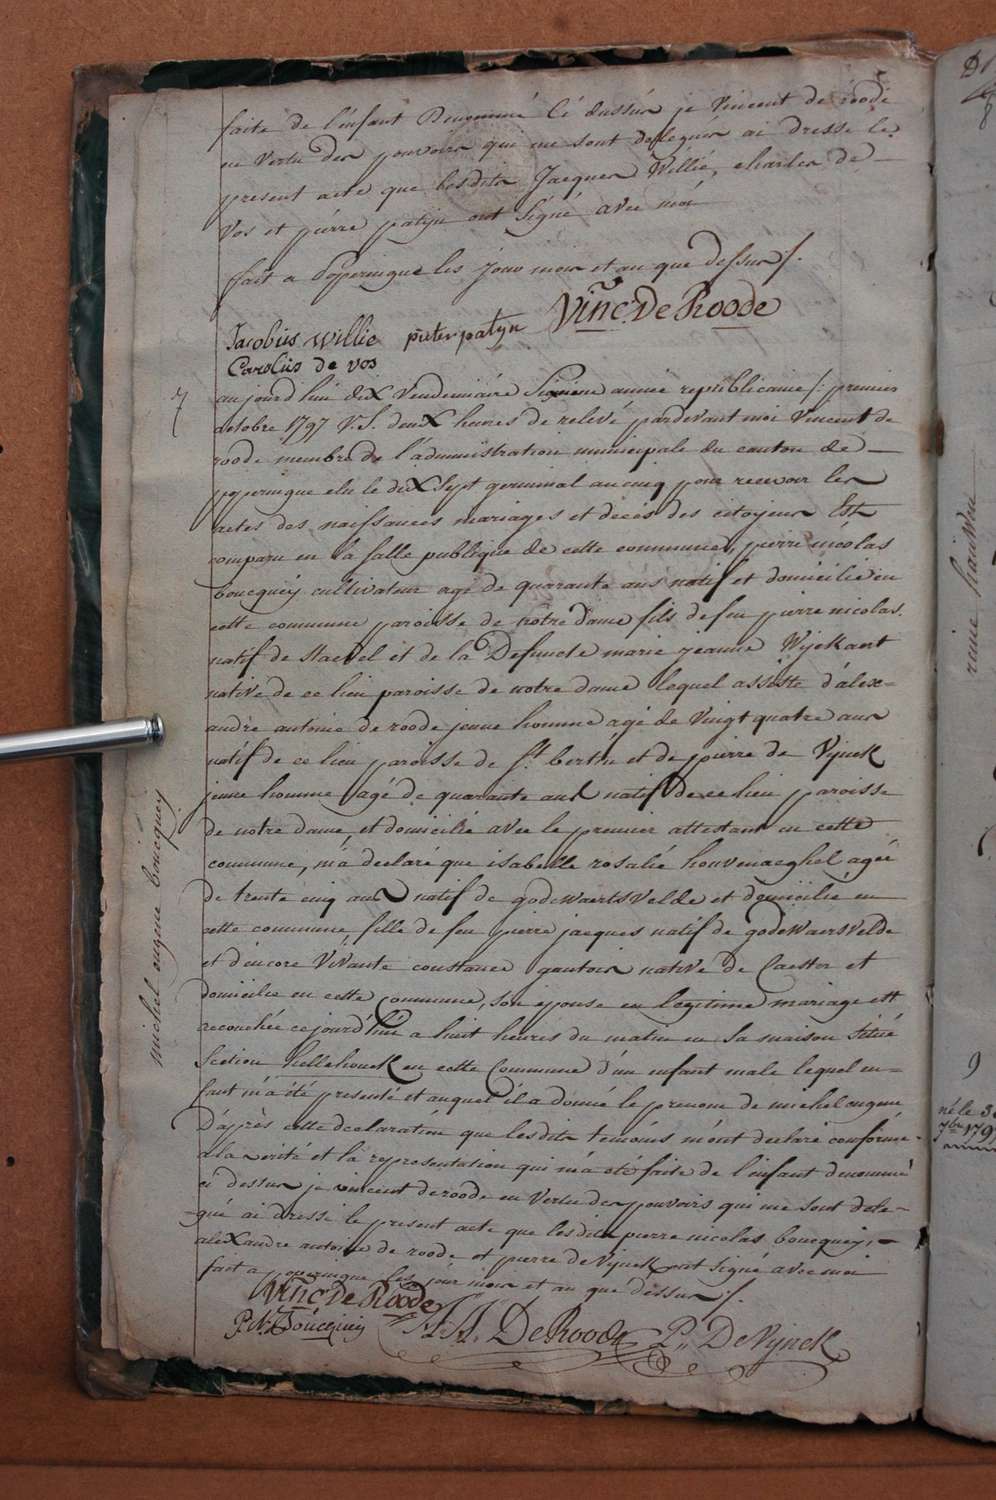 faite de l'enfant Denommé Ci dessus je Vincent de roode
en Vertu des pouvoirs qui me sont delegués ai dresse le
present acte que lesdits Jacques Willié, charles de
Vos et pierre patyn ont signé avec moi
fait a Poperingue les jour mois et an que dessus /.
Vinc. De Roode
Jacobus Willie pieter patyn
Carolus de vos
7
aujourd'hui dix Vendemiaire Sixieme année republicaine /: premier
octobre 1797 V.S. deux heures de relevé pardevant moi Vincent de
roode membre de l'administration municipale du canton de
poperingue elu le dix sept germinal au cinq pour recevoir les
actes des naissances mariages et décès des citoyens Est
comparu en la salle publique de cette commune, pierre nicolas
boucquey cultivateur agé de quarante ans natif et domicilié en
cette commune paroisse de notre dame fils de feu pierre nicolas
natif de Stavel et de la Defuncte marie jeanne Wyckaert
native de ce lieu paroisse de notre dame lequel assisté d'alex=
andre antoine de roode jeune homme agé de Vingt quatre ans
natif de ce lieu paroisse de st berthe et de pierre de Vynck
jeune homme agé de quarante ans natif de ce lieu paroisse
de notre dame et domicilié avec le premier attestant en cette
commune, m'a declaré que isabelle rosalie houvenaeghel agée
de trente cinq ans natif de godewaertsvelde et domiciliée en
cette commune fille de feu pierre jacques natif de godewaersvelde
et d'encore Vivante constance gautois native de Caester et
domiciliée en cette Commune, son epouse en legitime mariage est
accouchée cejourd'hui a huit heures du matin en sa maison situé
Section hellehouck en cette Commune d'un enfant male lequel en=
fant m'a été presenté et auquel il a donné le prenom de michel eugene
D'après cette declaration que lesdits temoins m'ont declaré conforme
a la verité et la representation qui m'a été faite de l'enfant denommé
ci dessus je vincent de roode en Vertu des pouvoirs qui me sont dele=
gué ai dressé le present acte que lesdits pierre nicolas boucquey,
alexandre antoine de roode et pierre de Vynck ont signé avec moi
fait a poperingue les jour mois et an que dessus /.
Vinc. De Roode
P.N. Boucquey A. A. De Roode P. De Vynck
michel eugene boucquey
9
né le 3
7bre 179